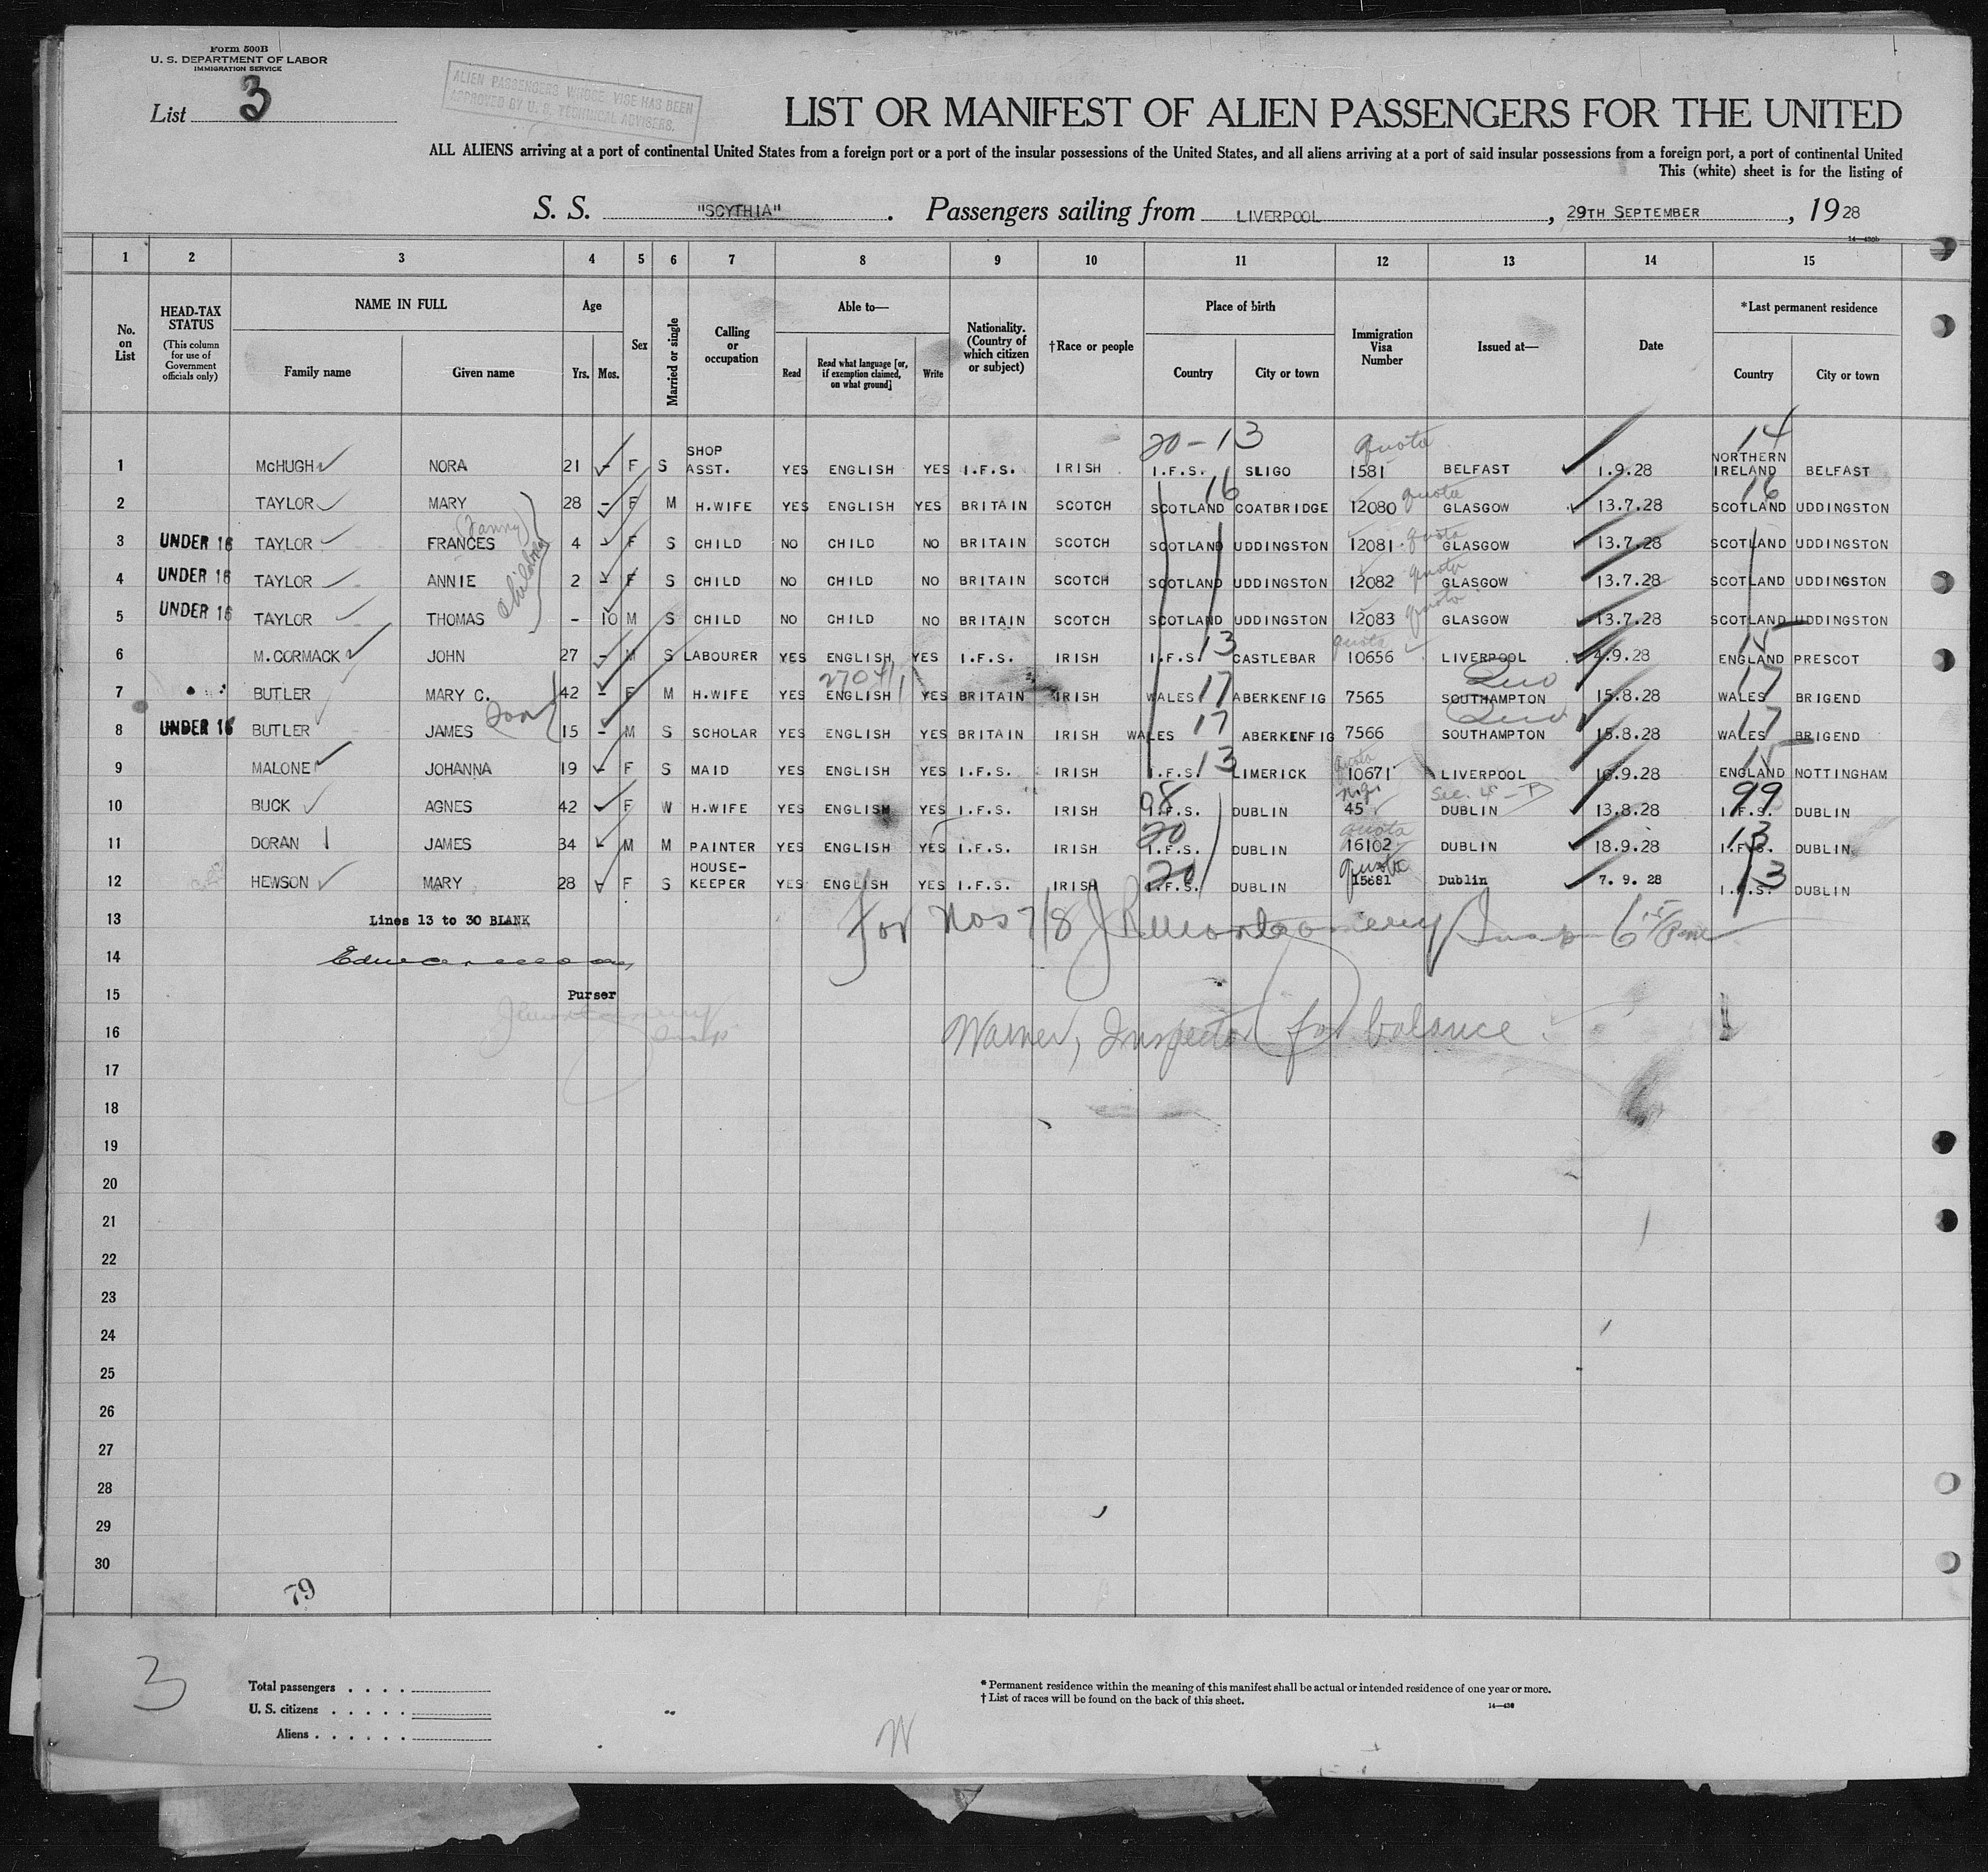 Form 500B
U. S. DEPARTMENT OF LABOR
IMMIGRATION SERVICE
List 3
ALIEN PASSENGERS WHOSE VISE HAS BEEN
APPROVED BY U. S. TECHNICAL ADVISERS.
LIST OR MANIFEST OF ALIEN PASSENGERS FOR THE UNITED
ALL ALIENS arriving at a port of continental United States from a foreign port or a port of the insular possessions of the United States, and all aliens arriving at a port of said insular possessions from a foreign port, a port of continental United
This (white) sheet is for the listing of
S. S. "SCYTHIA". Passengers sailing from LIVERPOOL, 29TH SEPTEMBER, 1928
14—430b
1 2 3 4 5 6 7 8 9 10 11 12 13 14 15
No. on List
HEAD-TAX STATUS (This column for use of Government officials only)
NAME IN FULL Family name Given name
Age Yrs. Mos.
Sex
Married or single
Calling or occupation
Able to— Read Read what language [or, if exemption claimed, on what ground] Write
Nationality. (Country of which citizen or subject)
†Race or people
Place of birth Country City or town
Immigration Visa Number
Issued at—
Date
*Last permanent residence Country City or town
20-13 quota 14
1 McHUGH NORA 21 - F S SHOP ASST. YES ENGLISH YES I.F.S. IRISH I.F.S. SLIGO 1581 BELFAST 1.9.28 NORTHERN IRELAND BELFAST
16 quota 16
2 TAYLOR MARY 28 - F M H.WIFE YES ENGLISH YES BRITAIN SCOTCH SCOTLAND COATBRIDGE 12080 GLASGOW 13.7.28 SCOTLAND UDDINGSTON
(Fanny) children quota
3 UNDER 16 TAYLOR FRANCES 4 - F S CHILD NO CHILD NO BRITAIN SCOTCH SCOTLAND UDDINGSTON 12081 GLASGOW 13.7.28 SCOTLAND UDDINGSTON
quota
4 UNDER 16 TAYLOR ANNIE 2 - F S CHILD NO CHILD NO BRITAIN SCOTCH SCOTLAND UDDINGSTON 12082 GLASGOW 13.7.28 SCOTLAND UDDINGSTON
quota
5 UNDER 16 TAYLOR THOMAS - 10 M S CHILD NO CHILD NO BRITAIN SCOTCH SCOTLAND UDDINGSTON 12083 GLASGOW 13.7.28 SCOTLAND UDDINGSTON
13 quota 15
6 M.CORMACK JOHN 27 - M S LABOURER YES ENGLISH YES I.F.S. IRISH I.F.S. CASTLEBAR 10656 LIVERPOOL 4.9.28 ENGLAND PRESCOT
17 17
7 BUTLER MARY C. 42 - F M H.WIFE YES ENGLISH YES BRITAIN IRISH WALES ABERKENFIG 7565 SOUTHAMPTON 15.8.28 WALES BRIGEND
son 17 17
8 UNDER 16 BUTLER JAMES 15 - M S SCHOLAR YES ENGLISH YES BRITAIN IRISH WALES ABERKENFIG 7566 SOUTHAMPTON 15.8.28 WALES BRIGEND
13 quota 15
9 MALONE JOHANNA 19 - F S MAID YES ENGLISH YES I.F.S. IRISH I.F.S. LIMERICK 10671 LIVERPOOL 10.9.28 ENGLAND NOTTINGHAM
98 99
10 BUCK AGNES 42 F W H.WIFE YES ENGLISH YES I.F.S. IRISH I.F.S. DUBLIN 45 DUBLIN 13.8.28 I.F.S. DUBLIN
20 quota 13
11 DORAN JAMES 34 - M M PAINTER YES ENGLISH YES I.F.S. IRISH I.F.S. DUBLIN 16102 DUBLIN 18.9.28 I.F.S. DUBLIN
20 quota 13
12 HEWSON MARY 28 - F S HOUSE-KEEPER YES ENGLISH YES I.F.S. IRISH I.F.S. DUBLIN 15681 Dublin 7. 9. 28 I.F.S. DUBLIN
13 Lines 13 to 30 BLANK
For Nos 7/8 J Montgomery Insp
14
15 Purser
16 Warner, Inspector for balance.
17
18
19
20
21
22
23
24
25
26
27
28
29
30
79
3
Total passengers . . . .
U. S. citizens . . . . .
Aliens . . . . . .
* Permanent residence within the meaning of this manifest shall be actual or intended residence of one year or more.
† List of races will be found on the back of this sheet.
14—430
W